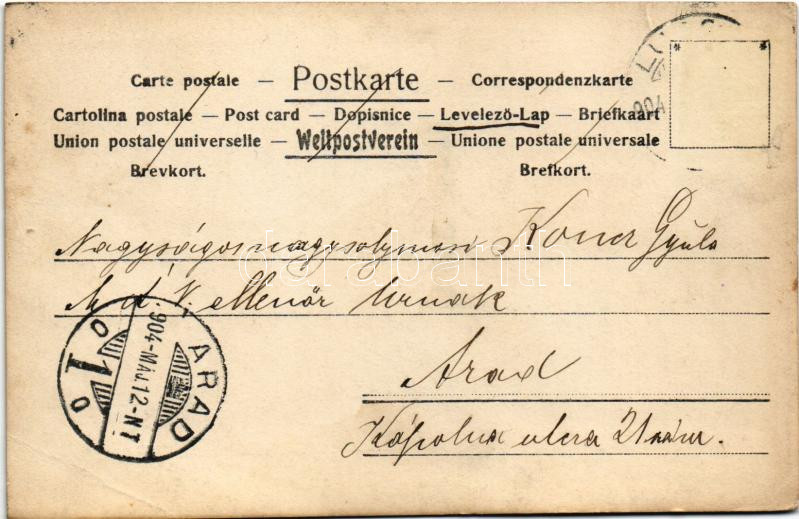 Carte postale — Postkarte — Correspondenzkarte
Cartolina postale — Post card — Dopisnice — Levelező-Lap — Briefkaart
Union postale universelle — Weltpostverein — Unione postale universale
Brevkort. Brefkort.
904
Nagyságos nagysolymosi Koncz Gyula
M á V. ellenőr Urnak
Arad
Kápolna utcza 21 szám.
ARAD
904-MÁJ.12-N1
1
darabanth